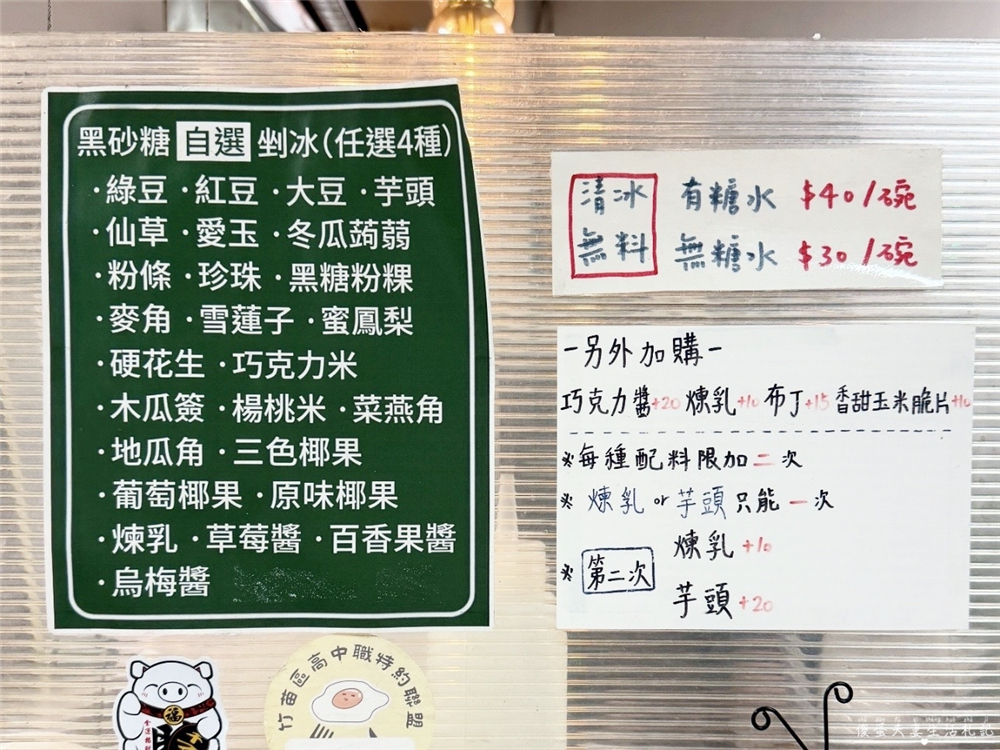 黑砂糖 自選 剉冰(任選4種)
·綠豆 ·紅豆 ·大豆 ·芋頭
·仙草 ·愛玉 ·冬瓜蒟蒻
·粉條 ·珍珠 ·黑糖粉粿
·麥角 ·雪蓮子 ·蜜鳳梨
·硬花生 ·巧克力米
·木瓜簽 ·楊桃米 ·菜燕角
·地瓜角 ·三色椰果
·葡萄椰果 ·原味椰果
·煉乳 ·草莓醬 ·百香果醬
·烏梅醬
清冰 有糖水 $40/碗
無料 無糖水 $30/碗
-另外加購-
巧克力醬+20 煉乳+10 布丁+15 香甜玉米脆片+10
※每種配料限加二次
※煉乳or芋頭只能一次
※第二次
煉乳+10
芋頭+20
竹苗區高中職特約聯盟
福